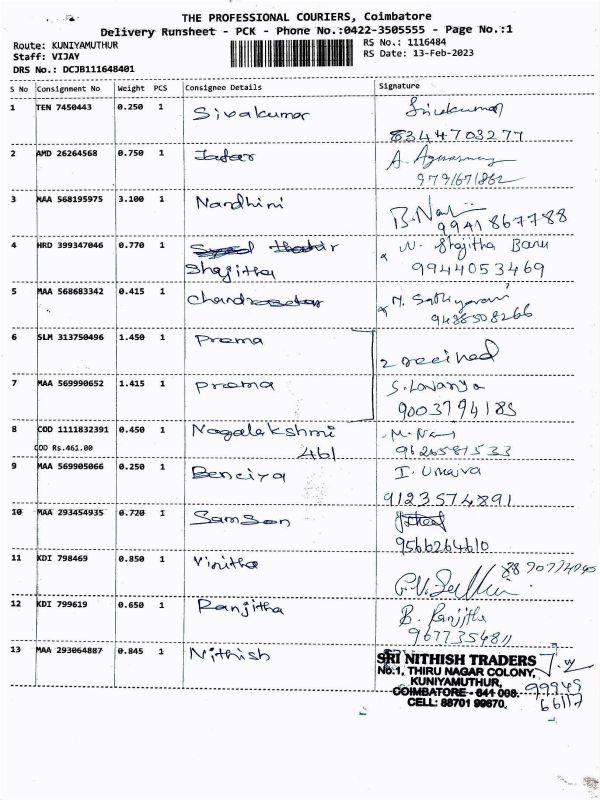 THE PROFESSIONAL COURIERS, Coimbatore
Delivery Runsheet - PCK - Phone No.:0422-3505555 - Page No.:1
Route: KUNIYAMUTHUR RS No.: 1116484
Staff: VIJAY RS Date: 13-Feb-2023
DRS No.: DCJB111648401
S No Consignment No Weight PCS Consignee Details Signature
1 TEN 7450443 0.250 1 Sivakumar Sivakumar
8344703277
2 AMD 26264568 0.750 1 Jafar A.
9791671862
3 MAA 568195975 3.100 1 Nandhini B.
9941867788
4 HRD 399347046 0.770 1 N. Shajitha Banu
Shajitha 9944053469
5 MAA 568683342 0.415 1 M. Sathiyavani
9488508266
6 SLM 313750496 1.450 1 Prema 2 received
7 MAA 569990652 1.415 1 Prema S. Lavanya
9003794185
8 COD 1111832391 0.450 1 Nagalakshmi M.
COD Rs.461.00 461 9626581533
9 MAA 569905066 0.250 1 Benciya I. Umaiva
9123574891
10 MAA 293454935 0.720 1 Samson
9566264610
11 KDI 798469 0.850 1 Vinitha
12 KDI 799619 0.650 1 Ranjitha B. Ranjitha
9677354811
13 MAA 293064887 0.845 1 Nithish SRI NITHISH TRADERS
No.1, THIRU NAGAR COLONY,
KUNIYAMUTHUR,
COIMBATORE - 641 008. 99949
CELL: 88701 99670. 66117